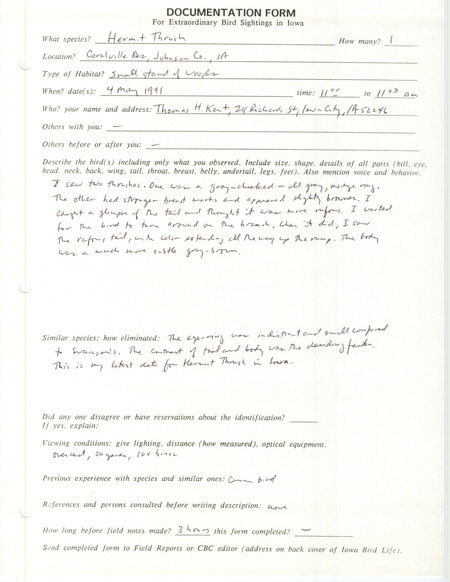 DOCUMENTATION FORM
For Extraordinary Bird Sightings in Iowa
What species? Hermit Thrush How many? 1
Location? Coralville Res, Johnson Co., IA
Type of Habitat? Small stand of woods
When? date(s): 4 May 1991 time: 11:00 to 11:03 am
Who? your name and address: Thomas H. Kent, 211 Richards St, Iowa City, IA 52246
Others with you: —
Others before or after you: —
Describe the bird(s) including only what you observed. Include size, shape, details of all parts (bill, eye,
head, neck, back, wing, tail, throat, breast, belly, undertail, legs, feet). Also mention voice and behavior.
I saw two thrushes. One was a gray-cheeked - all gray, no eye ring.
The other had stronger breast marks and appeared slightly browner. I
caught a glimpse of the tail and thought it was more rufous. I waited
for the bird to turn around on the branch, when it did, I saw
the rufous tail, with color extending all the way up the rump. The body
was a much more subtle gray-brown.
Similar species; how eliminated: The eye-ring was indistinct and small compared
to Swainson's. The contrast of tail and body was the deciding factor.
This is my latest date for Hermit Thrush in Iowa.
Did any one disagree or have reservations about the identification?
If yes, explain:
Viewing conditions: give lighting, distance (how measured), optical equipment.
overcast, 20 yards, 10x binoc
Previous experience with species and similar ones: Common bird
References and persons consulted before writing description: none
How long before field notes made? 3 hours this form completed? —
Send completed form to Field Reports or CBC editor (address on back cover of Iowa Bird Life).